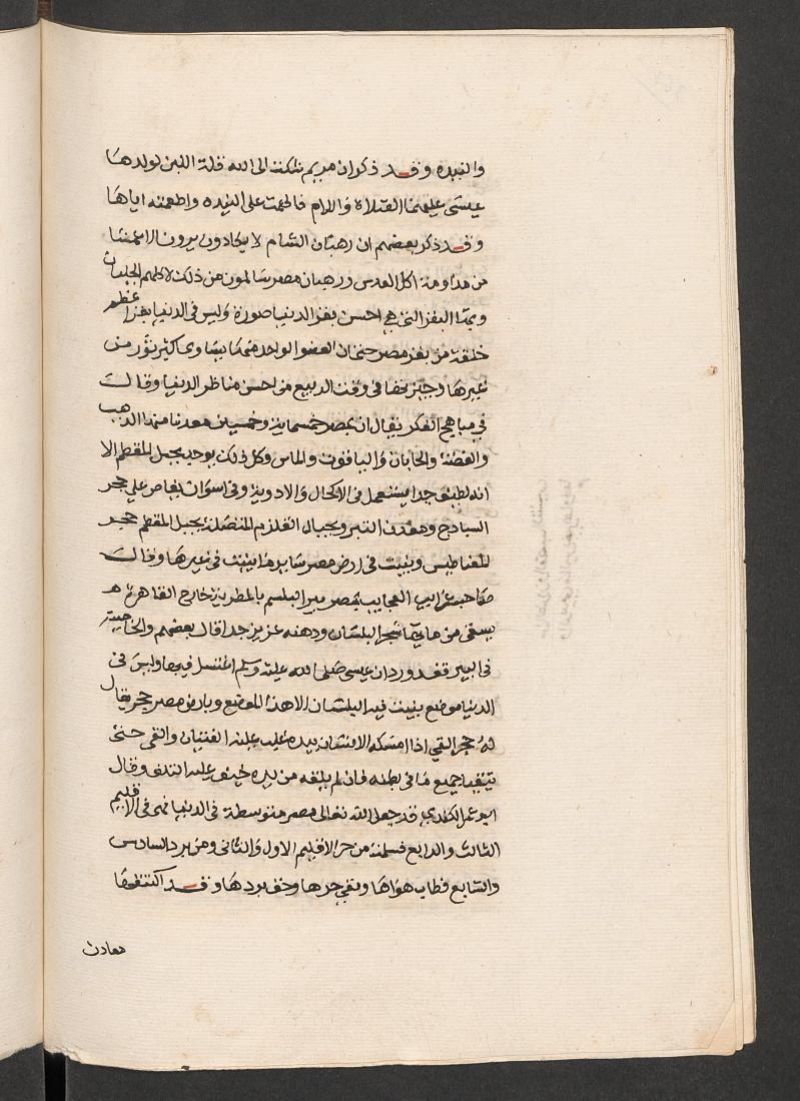 والنيده وقد ذكر ان مريم شكت الى الله قلة اللبن لولدها
عيسى عليهما الصلاة والسلام فالهمت على النيده واطعمته اياها
وقد ذكر بعضهم ان رهبان الشام لا يكادون يرون الا عمشا
من مداومة اكل العدس ورهبان مصر سالمون من ذلك لاكلهم الجلبان
وبها البقر التي هي احسن بقر الدنيا صورة وليس في الدنيا بقرا اعظم
خلقة من بقر مصر حتى ان العضو الواحد منها يساوي اكثر ثور من
غيرها وجيزتها في وقت الربيع من احسن مناظر الدنيا وقالت
في مباهج الفكر يقال ان بمصر خمسماية وخمسين معدنا منها الذهب
والفضة والياقوت والماس وكل ذلك يوجد بجبل المقطم الا
انه لطيف جدا يستعمل في الاكحال والادوية وفي اسوان يغاص على حجر
السبادج ومعدن التبر وبجبال القلزم المتصلة بجبل المقطم حجر
المغناطيس وينبت في ارض مصر ساير ما ينبت في غيرها وقالت
صاحب غرايب العجايب بمصر بير البلسم بالمطرية خارج القاهرة
يسقى من مايها شجر البلسان ودهنه عزيز جدا قال بعضهم والخاصية
في البير فقد ورد ان عيسى صلى الله عليه وسلم اغتسل فيها وليس في
الدنيا موضع ينبت فيه البلسان الا هذا الموضع وبارض مصر حجر يقال
له حجر القي اذا امسكه الانسان بيده غلب عليه الغثيان والقى حتى
يتقيا جميع ما في بطنه فان لم يلقه من يده خيف عليه التلف وقال
ابو عمر الكندي قد جعل الله تعالى مصر متوسطة في الدنيا فهي في الاقليم
الثالث والرابع فسلمت من حر الاقليم الاول والثاني ومن برد السادس
والسابع فطاب هواها وبقي حرها وخف بردها وقد اكتنفها
معادن